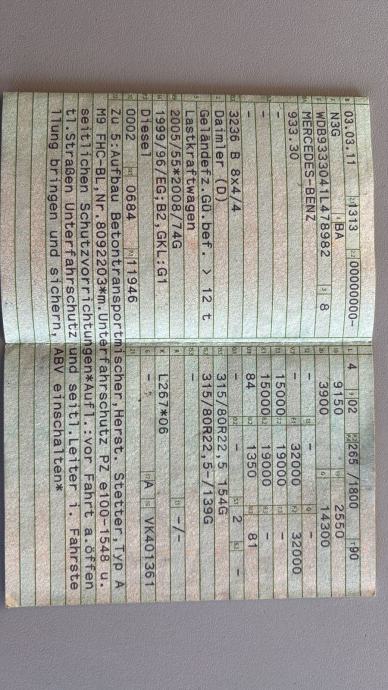 03.03.11 1313 00000000-
N3G BA
WDB9333041L478982 8
MERCEDES-BENZ
933.30
-
-
3236 B 8x4/4
Daimler (D)
Geländefz.Gü.bef. > 12 t
Lastkraftwagen
2005/55*2008/74G
1999/96/EG;B2,GKL:G1
Diesel
0002 0684 11946
4 02 265 /1800 90
9150 2550
3900 14300
- - -
- 32000 32000
15000 19000 -
15000 19000 -
84 1350 81
- - 2 -
315/80R22,5 154G
315/80R22,5-/139G
-
- -/-
L267*06
- A VK401361
Zu 5:Aufbau Betontransportmischer,Herst. Stetter,Typ A
M9 FHC-BL,Nr.8092203*m.Unterfahrschutz PZ e100-1548 u.
seitlichen Schutzvorrichtungen*Aufl.:vor Fahrt a.öffen
tl.Straßen Unterfahrschutz und seitl.Leiter i. Fahrste
llung bringen und sichern, ABV einschalten*